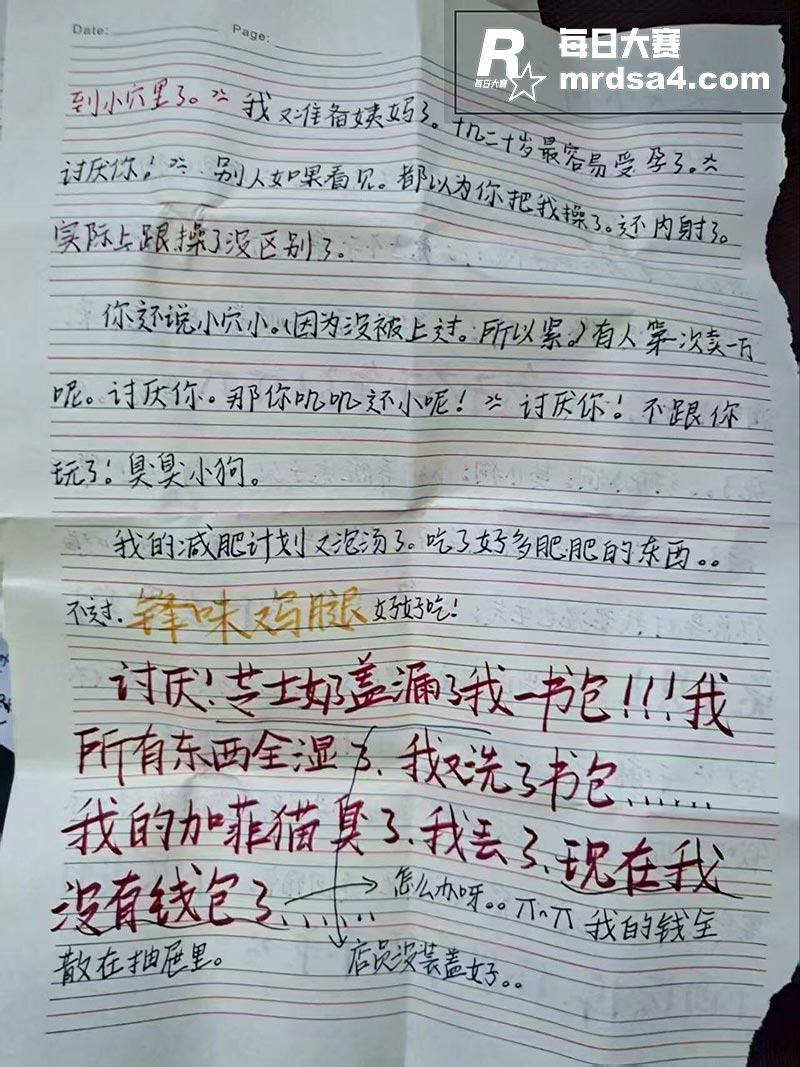 每日大赛
mrdsa4.com
R
每日大赛
Date:
Page:
到小穴里了。我又准备姨妈了。十 二十岁最容易受孕了。
讨厌你!别人如果看见。都以为你把我操了。还内射了。
实际上跟操了没区别了。
你还说小穴小。(因为没被上过。所以紧。)有人第一次卖一万
呢。讨厌你。那你叽叽还小呢!讨厌你!不跟你
玩了!臭臭小狗。
我的减肥计划又泡汤了。吃了好多肥肥的东西。。
不过.锋味鸡腿好好吃!
讨厌!芝士奶盖漏了我一书包!!!我
所有东西全湿了、我又洗了书包......
我的加菲猫臭了、我丢了、现在我
没有钱包了......→怎么办呀。。π^π 我的钱全
散在抽屉里。
店员没装盖好。。